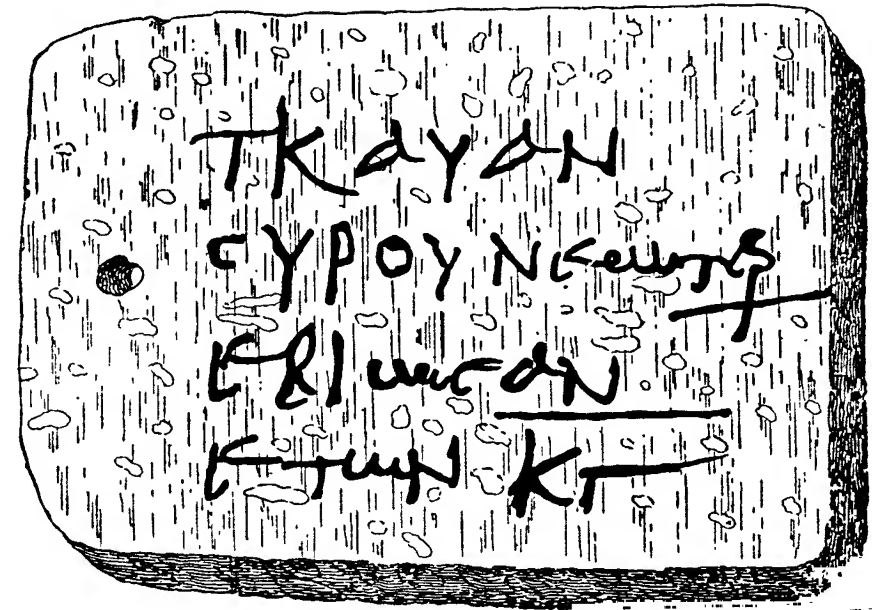 ΤΚΑΥΑΝ
ϹΥΡΟΥ ΝΕΩΤΕΡ
ΕΒΙΩϹΑΝ
ΕΤΩΝ ΚΓ